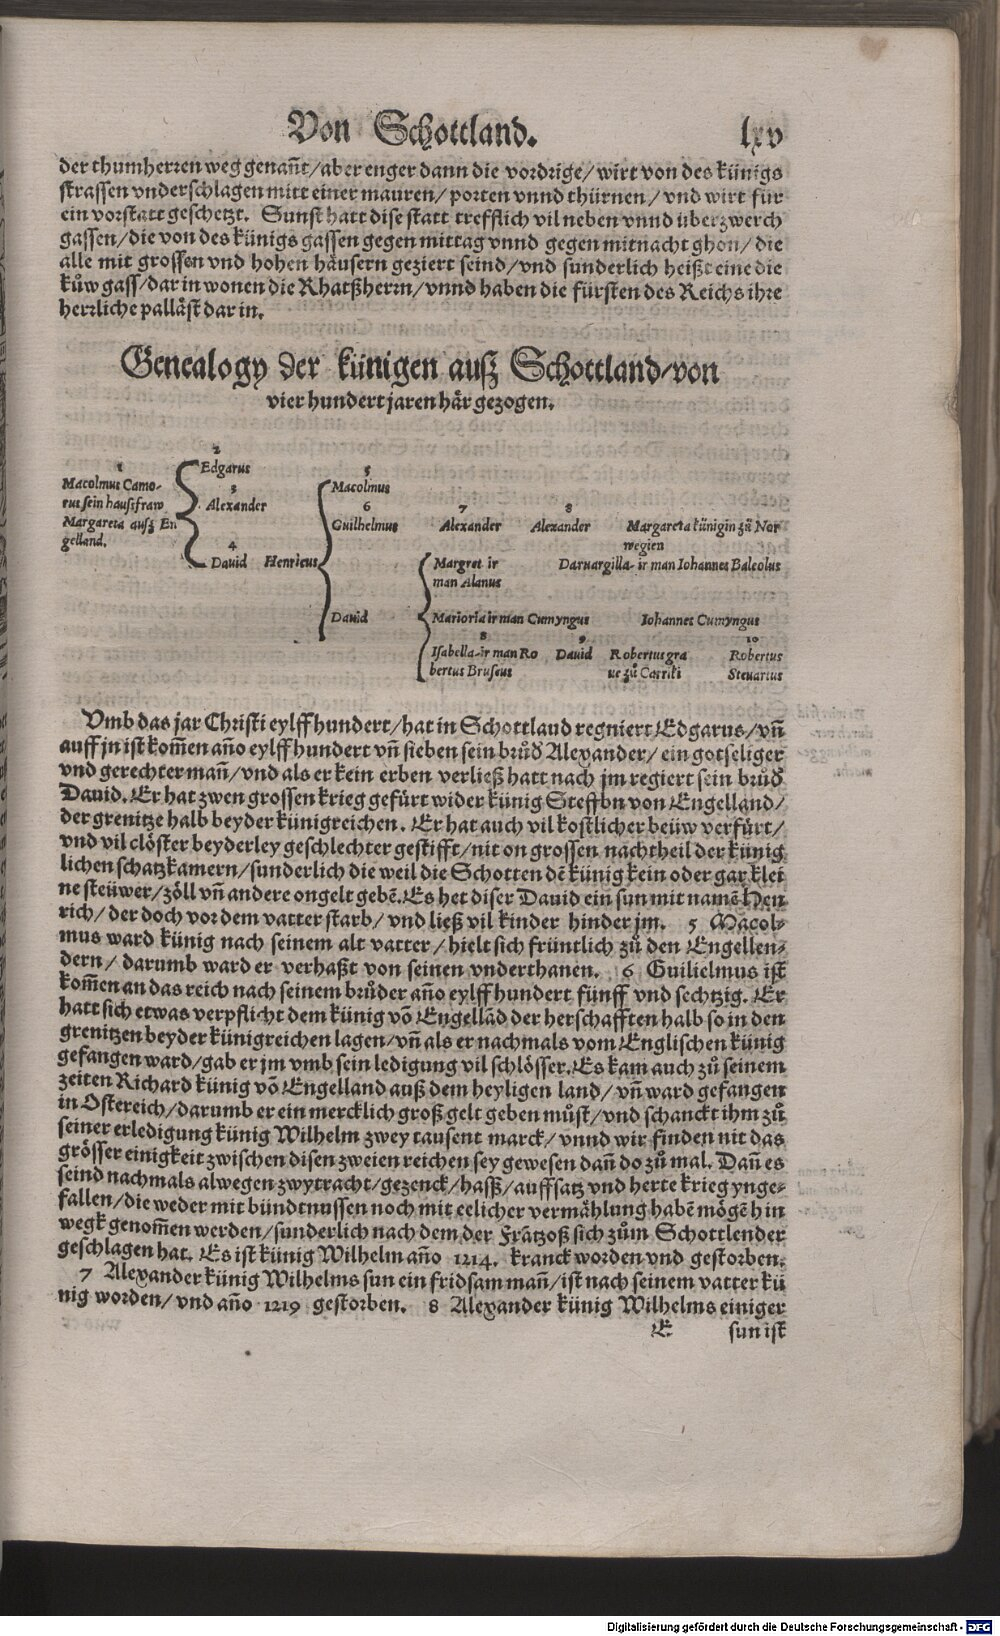 Von Schottland. lxv
der thumherren weg genañt/ aber enger dann die vordrige/ wirt von des künigs
strassen vnderschlagen mitt einer mauren/ porten vnnd thürnen/ vnd wirt für
ein vorstatt geschetzt. Sunst hatt dise statt trefflich vil neben vnnd überzwerch
gassen/ die von des künigs gassen gegen mittag vnnd gegen mitnacht ghon/ die
alle mit grossen vnd hohen häusern geziert seind/ vnd sunderlich heißt eine die
kůw gass/ dar in wonen die Rhatßherrn/ vnnd haben die fürsten des Reichs ihre
herrliche palläst dar in.
Genealogy der künigen ausz Schottland/ von
vier hundert jaren här gezogen.
1
Macolmus Camo-
rus sein hausfraw
Margareta ausz En
gelland.
2
Edgarus
3
Alexander
4
David Henricus
5
Macolmus
6
Guilhelmus
7
Alexander
8
Alexander
Margareta künigin zů Nor
wegien
David
Margret ir
man Alanus
Darvargilla- ir man Iohannes Baleolus
Marioria ir man Cumyngus
Iohannes Cumyngus
8
Isabella- ir man Ro
bertus Bruseus
9
David
Robertus gra
ve zů Carrikt
10
Robertus
Stevartus
Vmb das jar Christi eylffhundert/ hat in Schottland regniert Edgarus/ vñ
auff jn ist kom̃en año eylffhundert vñ sieben sein brůd Alexander/ ein gotseliger
vnd gerechter mañ/ vnd als er kein erben verließ hatt nach jm regiert sein brůd
Dauid. Er hat zwen grossen krieg gefürt wider künig Steffbn von Engelland/
der grenitze halb beyder künigreichen. Er hat auch vil kostlicher beüw verfürt/
vnd vil clöster beyderley geschlechter gestifft/ nit on grossen nachtheil der künig
lichen schatzkamern/ sunderlich die weil die Schotten dē künig kein oder gar klei
ne steüwer/ zöll vñ andere ongelt gebē. Es het diser Dauid ein sun mit namē Hen
rich/ der doch vor dem vatter starb/ vnd ließ vil kinder hinder jm. 5 Macol-
mus ward künig nach seinem alt vatter/ hielt sich früntlich zů den Engellen-
dern/ darumb ward er verhaßt von seinen vnderthanen. 6 Guilielmus ist
kom̃en an das reich nach seinem brůder año eylffhundert fünff vnd sechtzig. Er
hatt sich etwas verpflicht dem künig vō Engellād der herschafften halb so in den
grenitzen beyder künigreichen lagen/ vñ als er nachmals vom Englischen künig
gefangen ward/ gab er jm vmb sein ledigung vil schlösser. Es kam auch zů seinem
zeiten Richard künig vō Engelland auß dem heyligen land/ vñ ward gefangen
in Ostereich/ darumb er ein mercklich groß gelt geben můst/ vnd schanckt ihm zů
seiner erledigung künig Wilhelm zwey tausent marck/ vnnd wir finden nit das
grösser einigkeit zwischen disen zweien reichen sey gewesen dañ do zů mal. Dañ es
seind nachmals alwegen zwytracht/ gezenck/ hassz/ auffsatz vnd herte krieg ynge-
fallen/ die weder mit bündtnussen noch mit eelicher vermählung habē mögē hin
wegk genom̃en werden/ sunderlich nach dem der Frātzoß sich zům Schottlender
geschlagen hat. Es ist künig Wilhelm año 1214. kranck worden vnd gestorben.
7 Alexander künig Wilhelms sun ein fridsam mañ/ ist nach seinem vatter kü
nig worden/ vnd año 1219 gestorben. 8 Alexander künig Wilhelms einiger
E sun ist
Digitalisierung gefördert durch die Deutsche Forschungsgemeinschaft - DFG